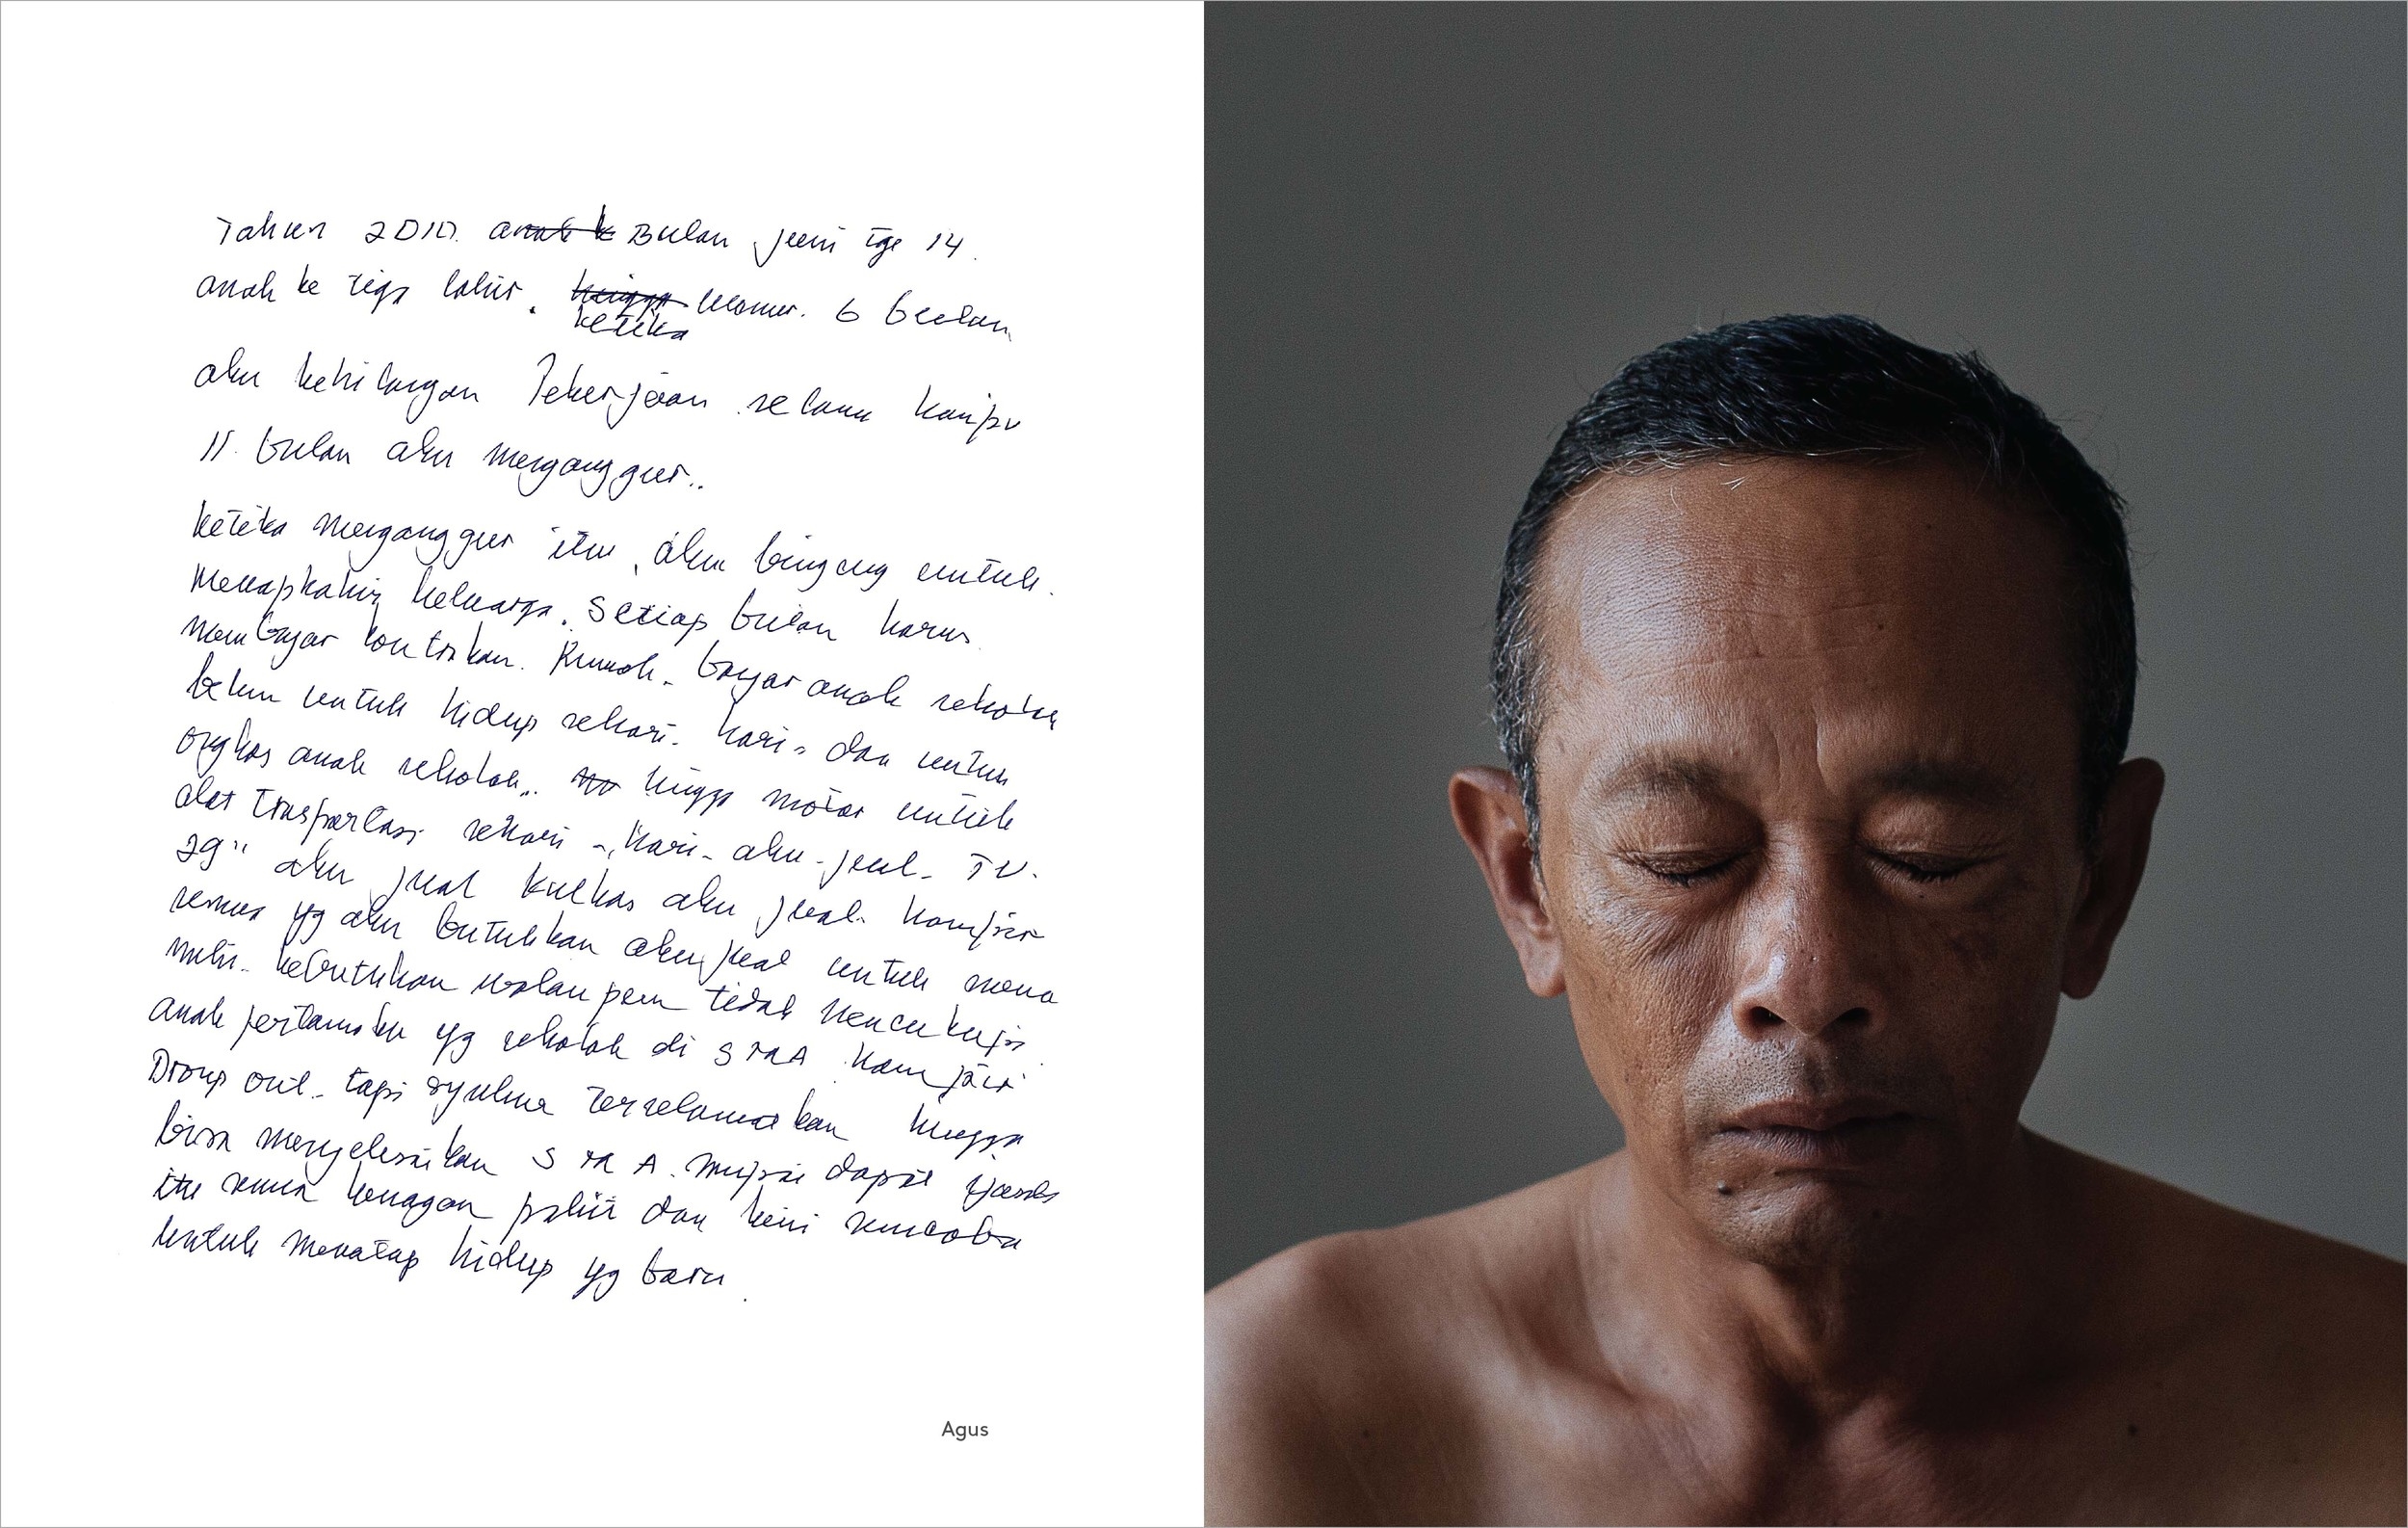 Tahun 2010. anak k Bulan juni tgl 14.
anak ke tiga lahir. hingga umur. 6 bulan
ketika
aku kehilangan Pekerjaan selama hampir
11. bulan aku menganggur..
ketika menganggur itu, aku bingung untuk.
Menapkahi keluarga. Setiap bulan harus
membayar kontrakan. Rumah. bayar anak sekolah
belum untuk hidup sehari. hari- dan untuk
ongkos anak sekolah.. hingga motor untuk
alat trasportasi sehari-hari- aku-jual- TV.
29" aku jual kulkas aku jual. hampir
semua yg aku butuhkan aku jual untuk
kebutuhan walau pun tidak mencukupi
anak pertamaku yg sekolah di SMA hampir
Droup out- tapi syukur terselamatkan hingga
bisa menyelesaikan SMA.
itu semua kenagan pahit dan kini mencoba
untuk menatap hidup yg baru.
Agus